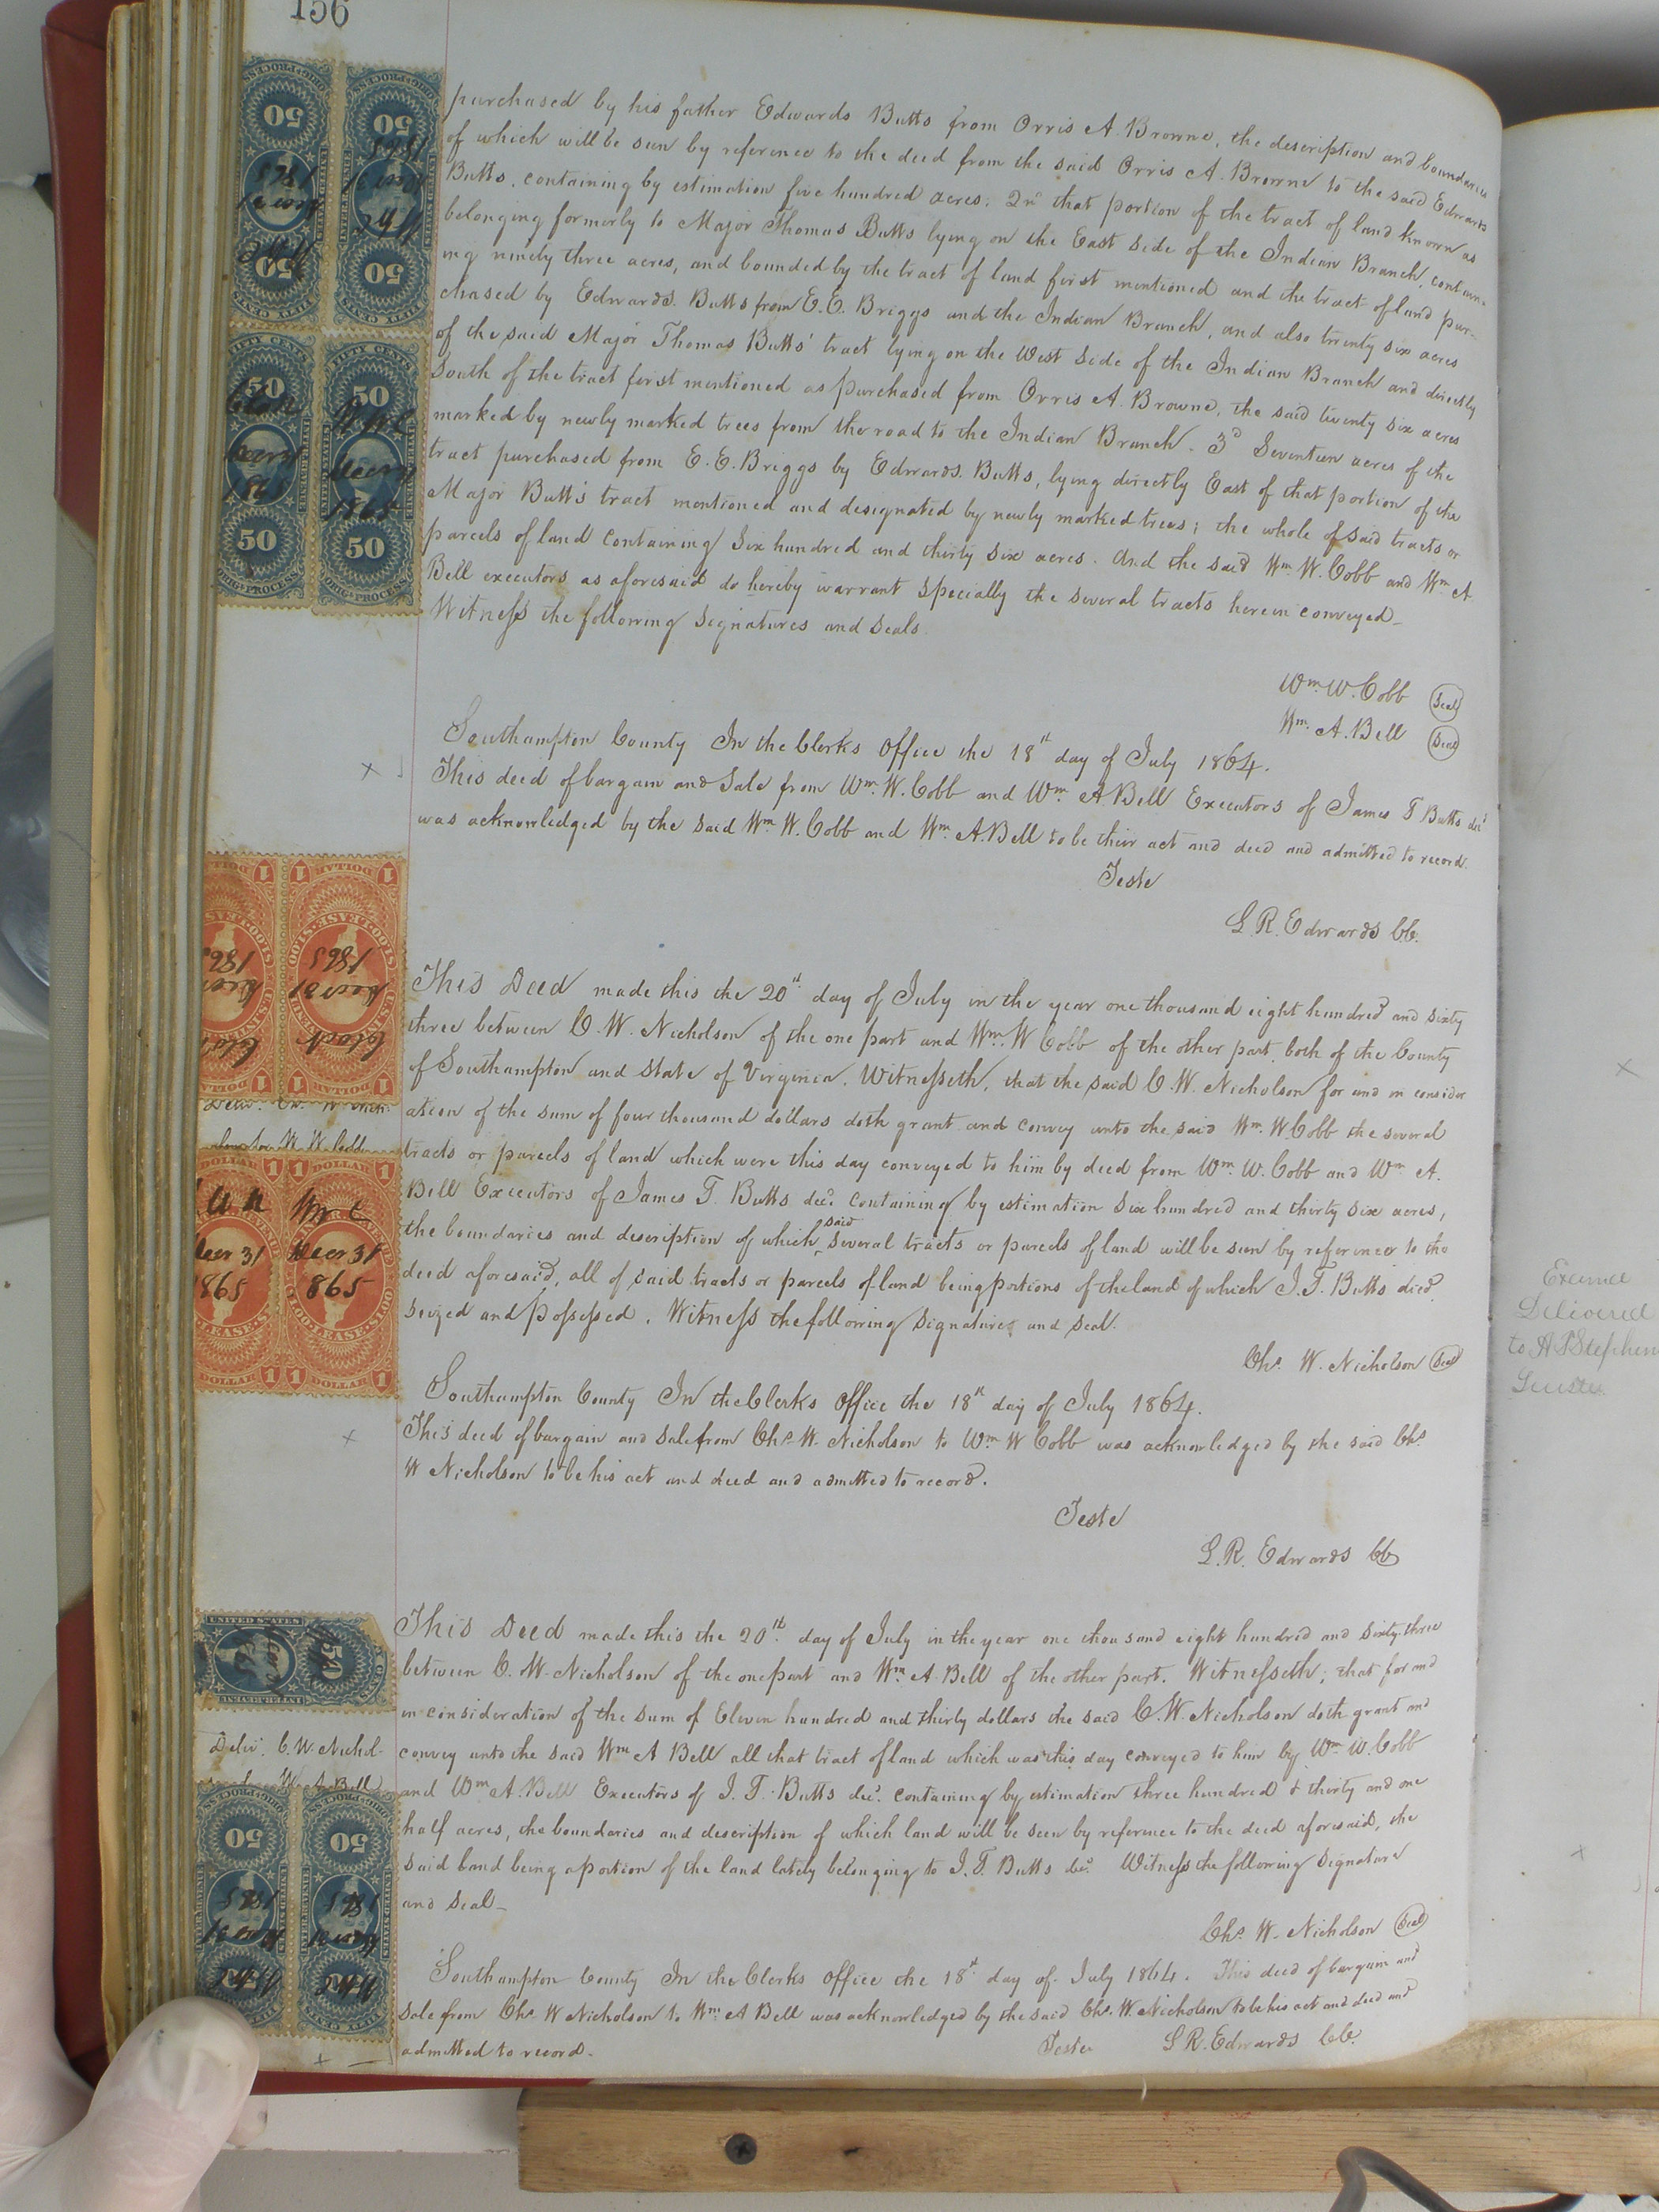 156
purchased by his father Edwards Butts from Orris A. Browne, the description and boundaries
of which will be seen by reference to the deed from the said Orris A. Browne to the said Edwards
Butts, containing by estimation five hundred acres; 2nd that portion of the tract of land known as
belonging formerly to Major Thomas Butts lying on the East side of the Indian Branch, contain-
ing ninety three acres, and bounded by the tract of land first mentioned and the tract of land pur-
chased by Edwards Butts from E. E. Briggs and the Indian Branch, and also twenty six acres
of the said Major Thomas Butts' tract lying on the West side of the Indian Branch and directly
South of the tract first mentioned as purchased from Orris A. Browne, the said twenty six acres
marked by newly marked trees from the road to the Indian Branch. 3d Seventeen acres of the
tract purchased from E. E. Briggs by Edwards Butts, lying directly East of that portion of the
Major Butt's tract mentioned and designated by newly marked trees; the whole of said tracts or
parcels of land containing Six hundred and thirty six acres. And the said Wm. W. Cobb and Wm A.
Bell executors as aforesaid do hereby warrant specially the several tracts herein conveyed_
Witness the following signatures and seals.
Wm W. Cobb Seal
Wm. A. Bell Seal
Southampton County In the Clerks Office the 18th day of July 1864.
This deed of bargain and sale from Wm. W. Cobb and Wm. A Bell Executors of James T Butts decd
was acknowledged by the said Wm W. Cobb and Wm. A. Bell to be their act and deed and admitted to record.
Teste
L. R. Edwards CC.
This Deed made this the 20th day of July in the year one thousand eight hundred and sixty
three between C. W. Nicholson of the one part and Wm. W Cobb of the other part, both of the County
of Southampton and State of Virginia. Witnesseth, that the said C. W. Nicholson for and in consider
ation of the sum of four thousand dollars doth grant and convey unto the said Wm. W. Cobb the several
tracts or parcels of land which were this day conveyed to him by deed from Wm. W. Cobb and Wm A.
Bell Executors of James T. Butts decd. containing by estimation six hundred and thirty six acres,
the boundaries and description of which said several tracts or parcels of land will be seen by reference to the
deed aforesaid, all of said tracts or parcels of land being portions of the land of which J. T. Butts died
seized and possessed. Witness the following signatures and seal.
Chs. W. Nicholson Seal
Southampton County In the Clerks Office the 18th day of July 1864.
This deed of bargain and sale from Chs. W. Nicholson to Wm W Cobb was acknowledged by the said Chs.
W Nicholson to be his act and deed and admitted to record.
Teste
L. R. Edwards CC
This Deed made this the 20th. day of July in the year one thousand eight hundred and sixty-three
between C. W. Nicholson of the one part and Wm A. Bell of the other part. Witnesseth; that for and
in consideration of the sum of Eleven hundred and thirty dollars the said C. W. Nicholson doth grant and
convey unto the said Wm A Bell all that tract of land which was this day conveyed to him by Wm. W. Cobb
and Wm A. Bell Executors of J. T. Butts decd. containing by estimation three hundred & thirty and one
half acres, the boundaries and description of which land will be seen by reference to the deed aforesaid, the
said land being a portion of the land lately belonging to J. T. Butts decd. Witness the following signature
and seal_
Chs. W. Nicholson Seal
Southampton County In the Clerks Office the 18th day of July 1864. This deed of bargain and
sale from Chs. W Nicholson to Wm. A Bell was acknowledged by the said Chs. W. Nicholson to be his act and deed and
admitted to record.
Teste L. R. Edwards CC.
Delivd. C. W. Nichol-
W. A. Bell
FIFTY CENTS
50
50
ORIG. PROCESS
Decr 31
1865
1 DOLLAR 1
$1.00 LEASE $1.00
Decr 31
1865
UNITED STATES
INTER. REVENUE
Delivered
to A P Stephen